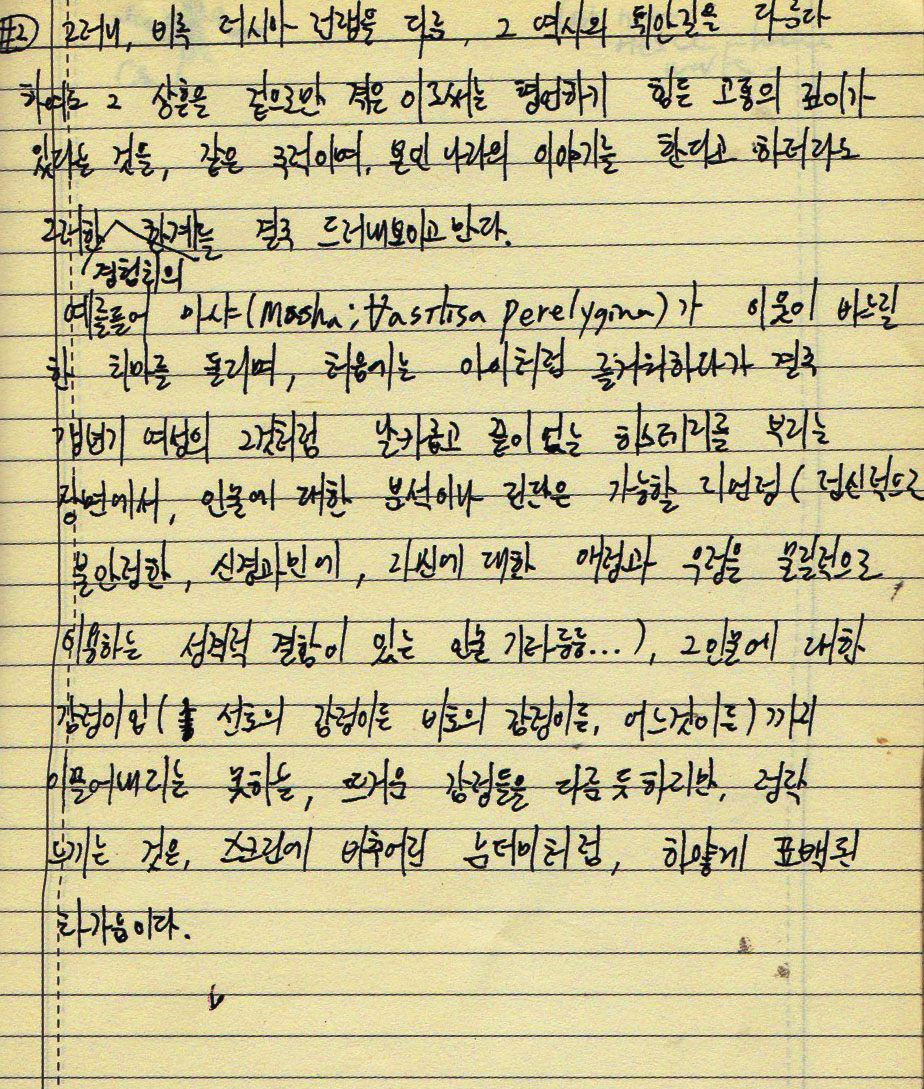 #2) 그러나, 비록 러시아 전쟁을 다룬, 그 역사의 뒤안길을 다룬다
하여도 그 상흔을 겉으로만 적은 이로써는 형언하기 힘든 고통의 깊이가
있다는 것을, 같은 국적이며, 본인 나라의 이야기를 한다고 하더라도
그러한 경험치의 한계를 결국 드러내보이고 만다.
예를들어 마샤(Masha; Vasilisa perelygina)가 이웃이 바느질
한 치마를 돌리며, 처음에는 아이처럼 즐거워하다가 결국
갱년기 여성의 그것처럼 날카롭고 끝이 없는 히스테리를 부리는
장면에서, 인물에 대한 분석이나 진단은 가능할 지언정 (정신적으로
불안정한, 신경과민에, 자신에 대한 애정과 우정을 물질적으로
이용하는 성격적 결함이 있는 인물 기타등등...), 그 인물에 대한
감정이입 (선토의 감정이든 비토의 감정이든, 어느것이든) 까지
이끌어내지는 못하는, 뜨거운 감정들을 다룸 듯 하지만, 정작
느끼는 것은, 스크린에 비추어진 눈더미처럼, 하얗게 표백된
차가움이다.